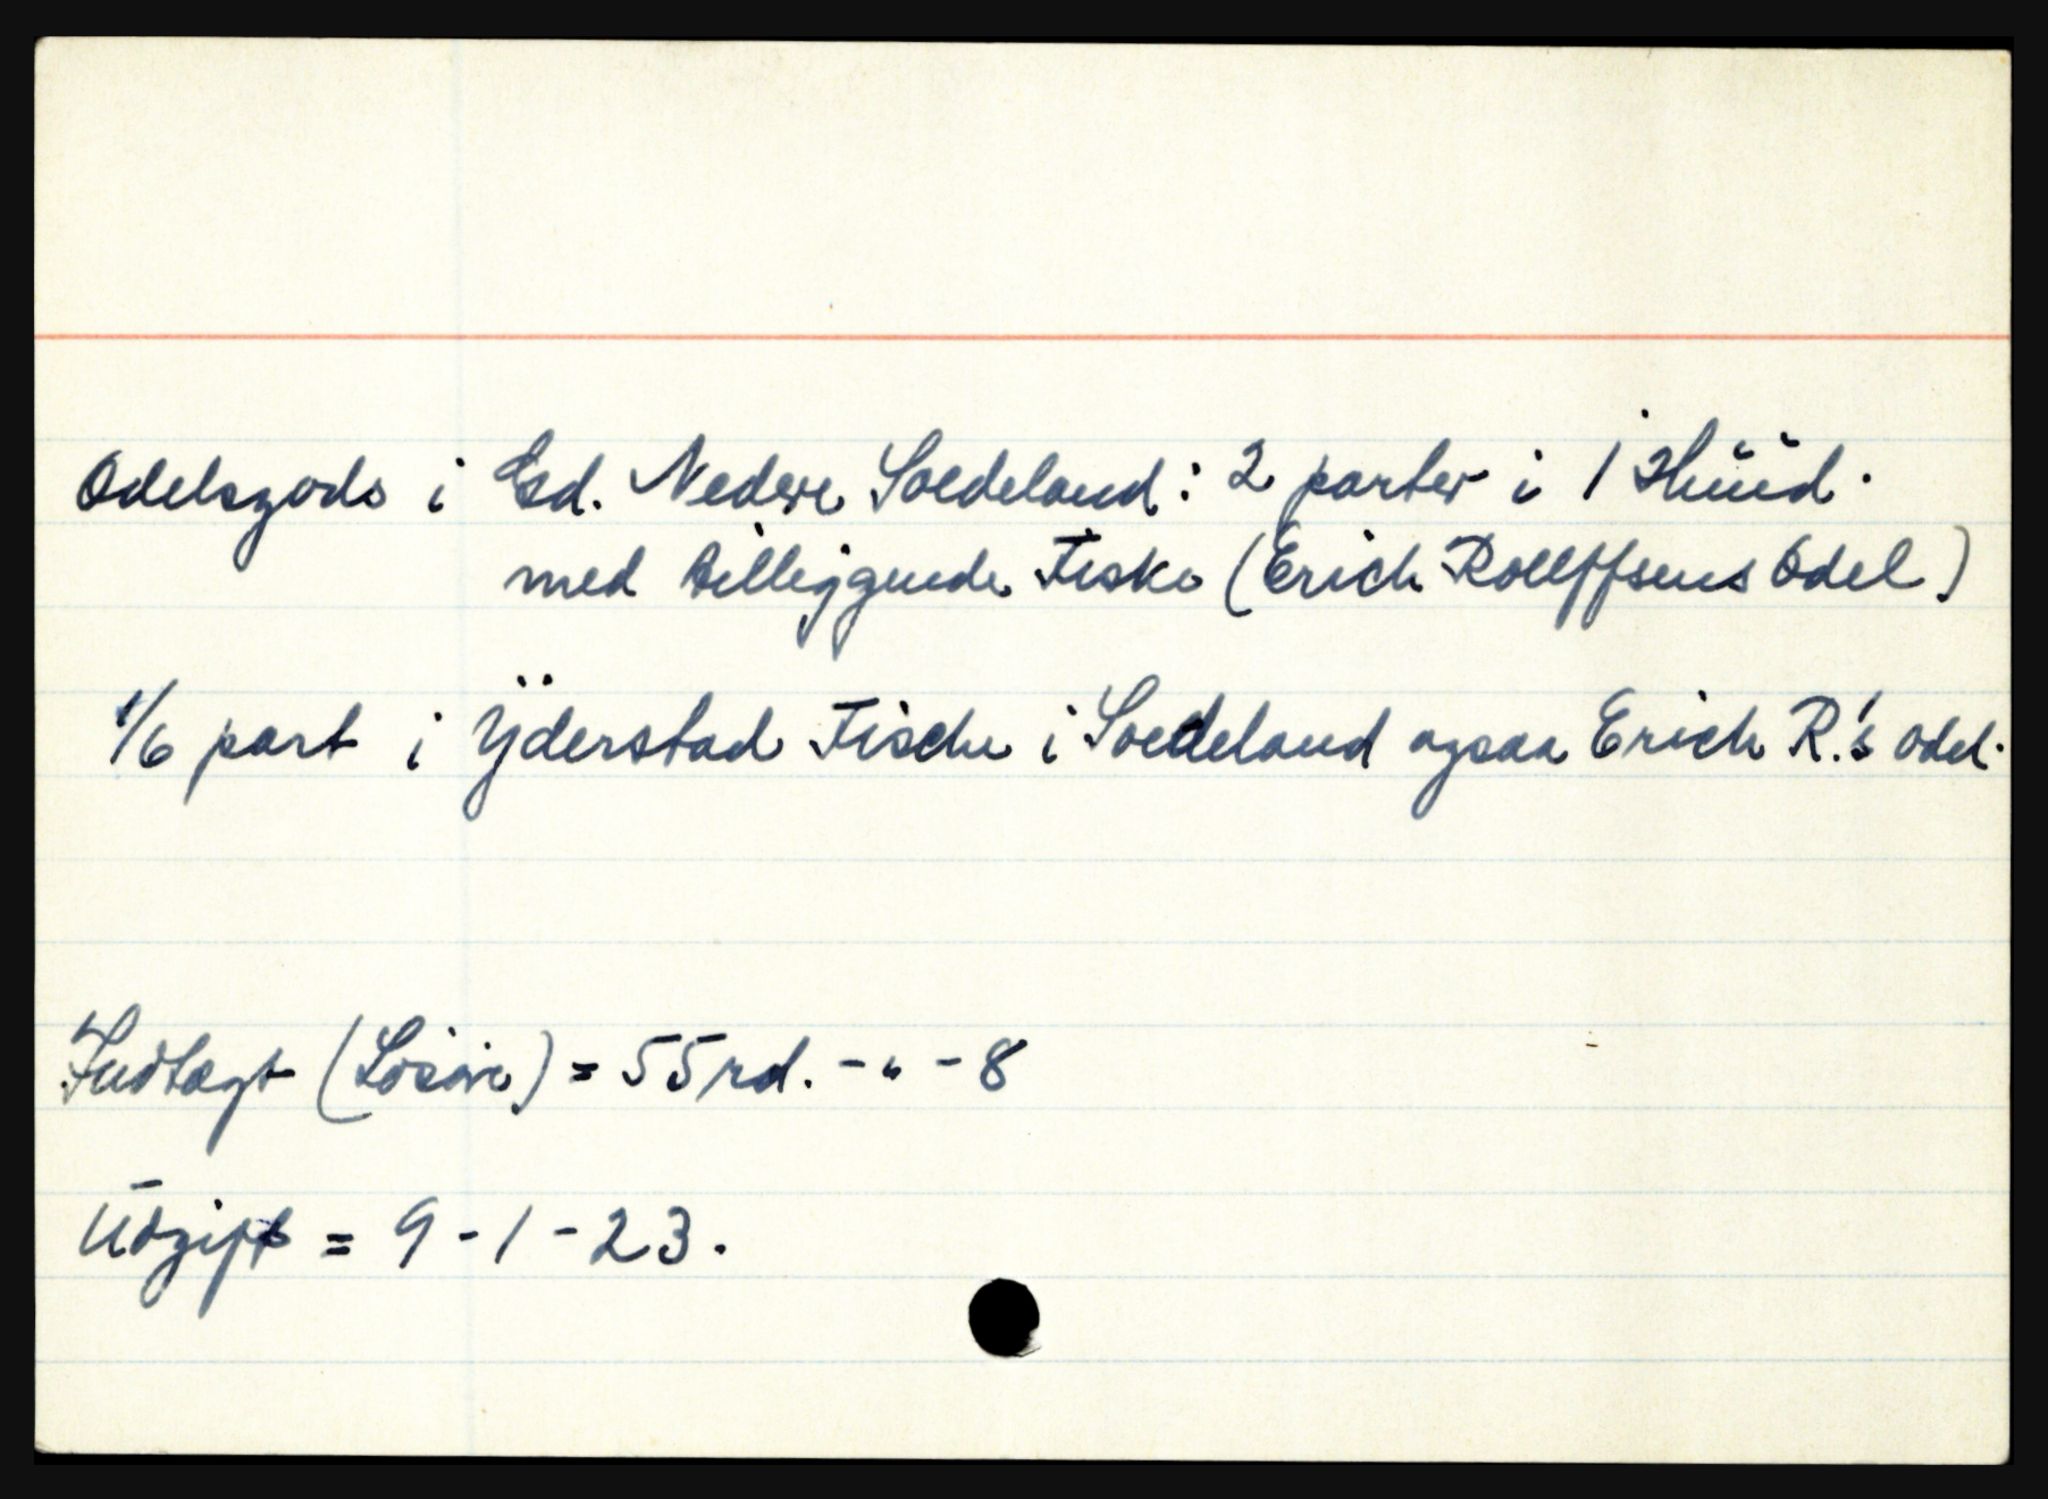 Odelsgods i Gd. Nedre Soedeland: 2 parter i 1 Huud.
med tilliggende Fiske (Erich Rollffsens Odel)
1/6 part i Ÿderstad Fische i Soedeland ogsaa Erich R.'s odel.
Indtægt (Løsøre) = 55 rd. - " - 8
Udgift = 9 - 1 - 23.